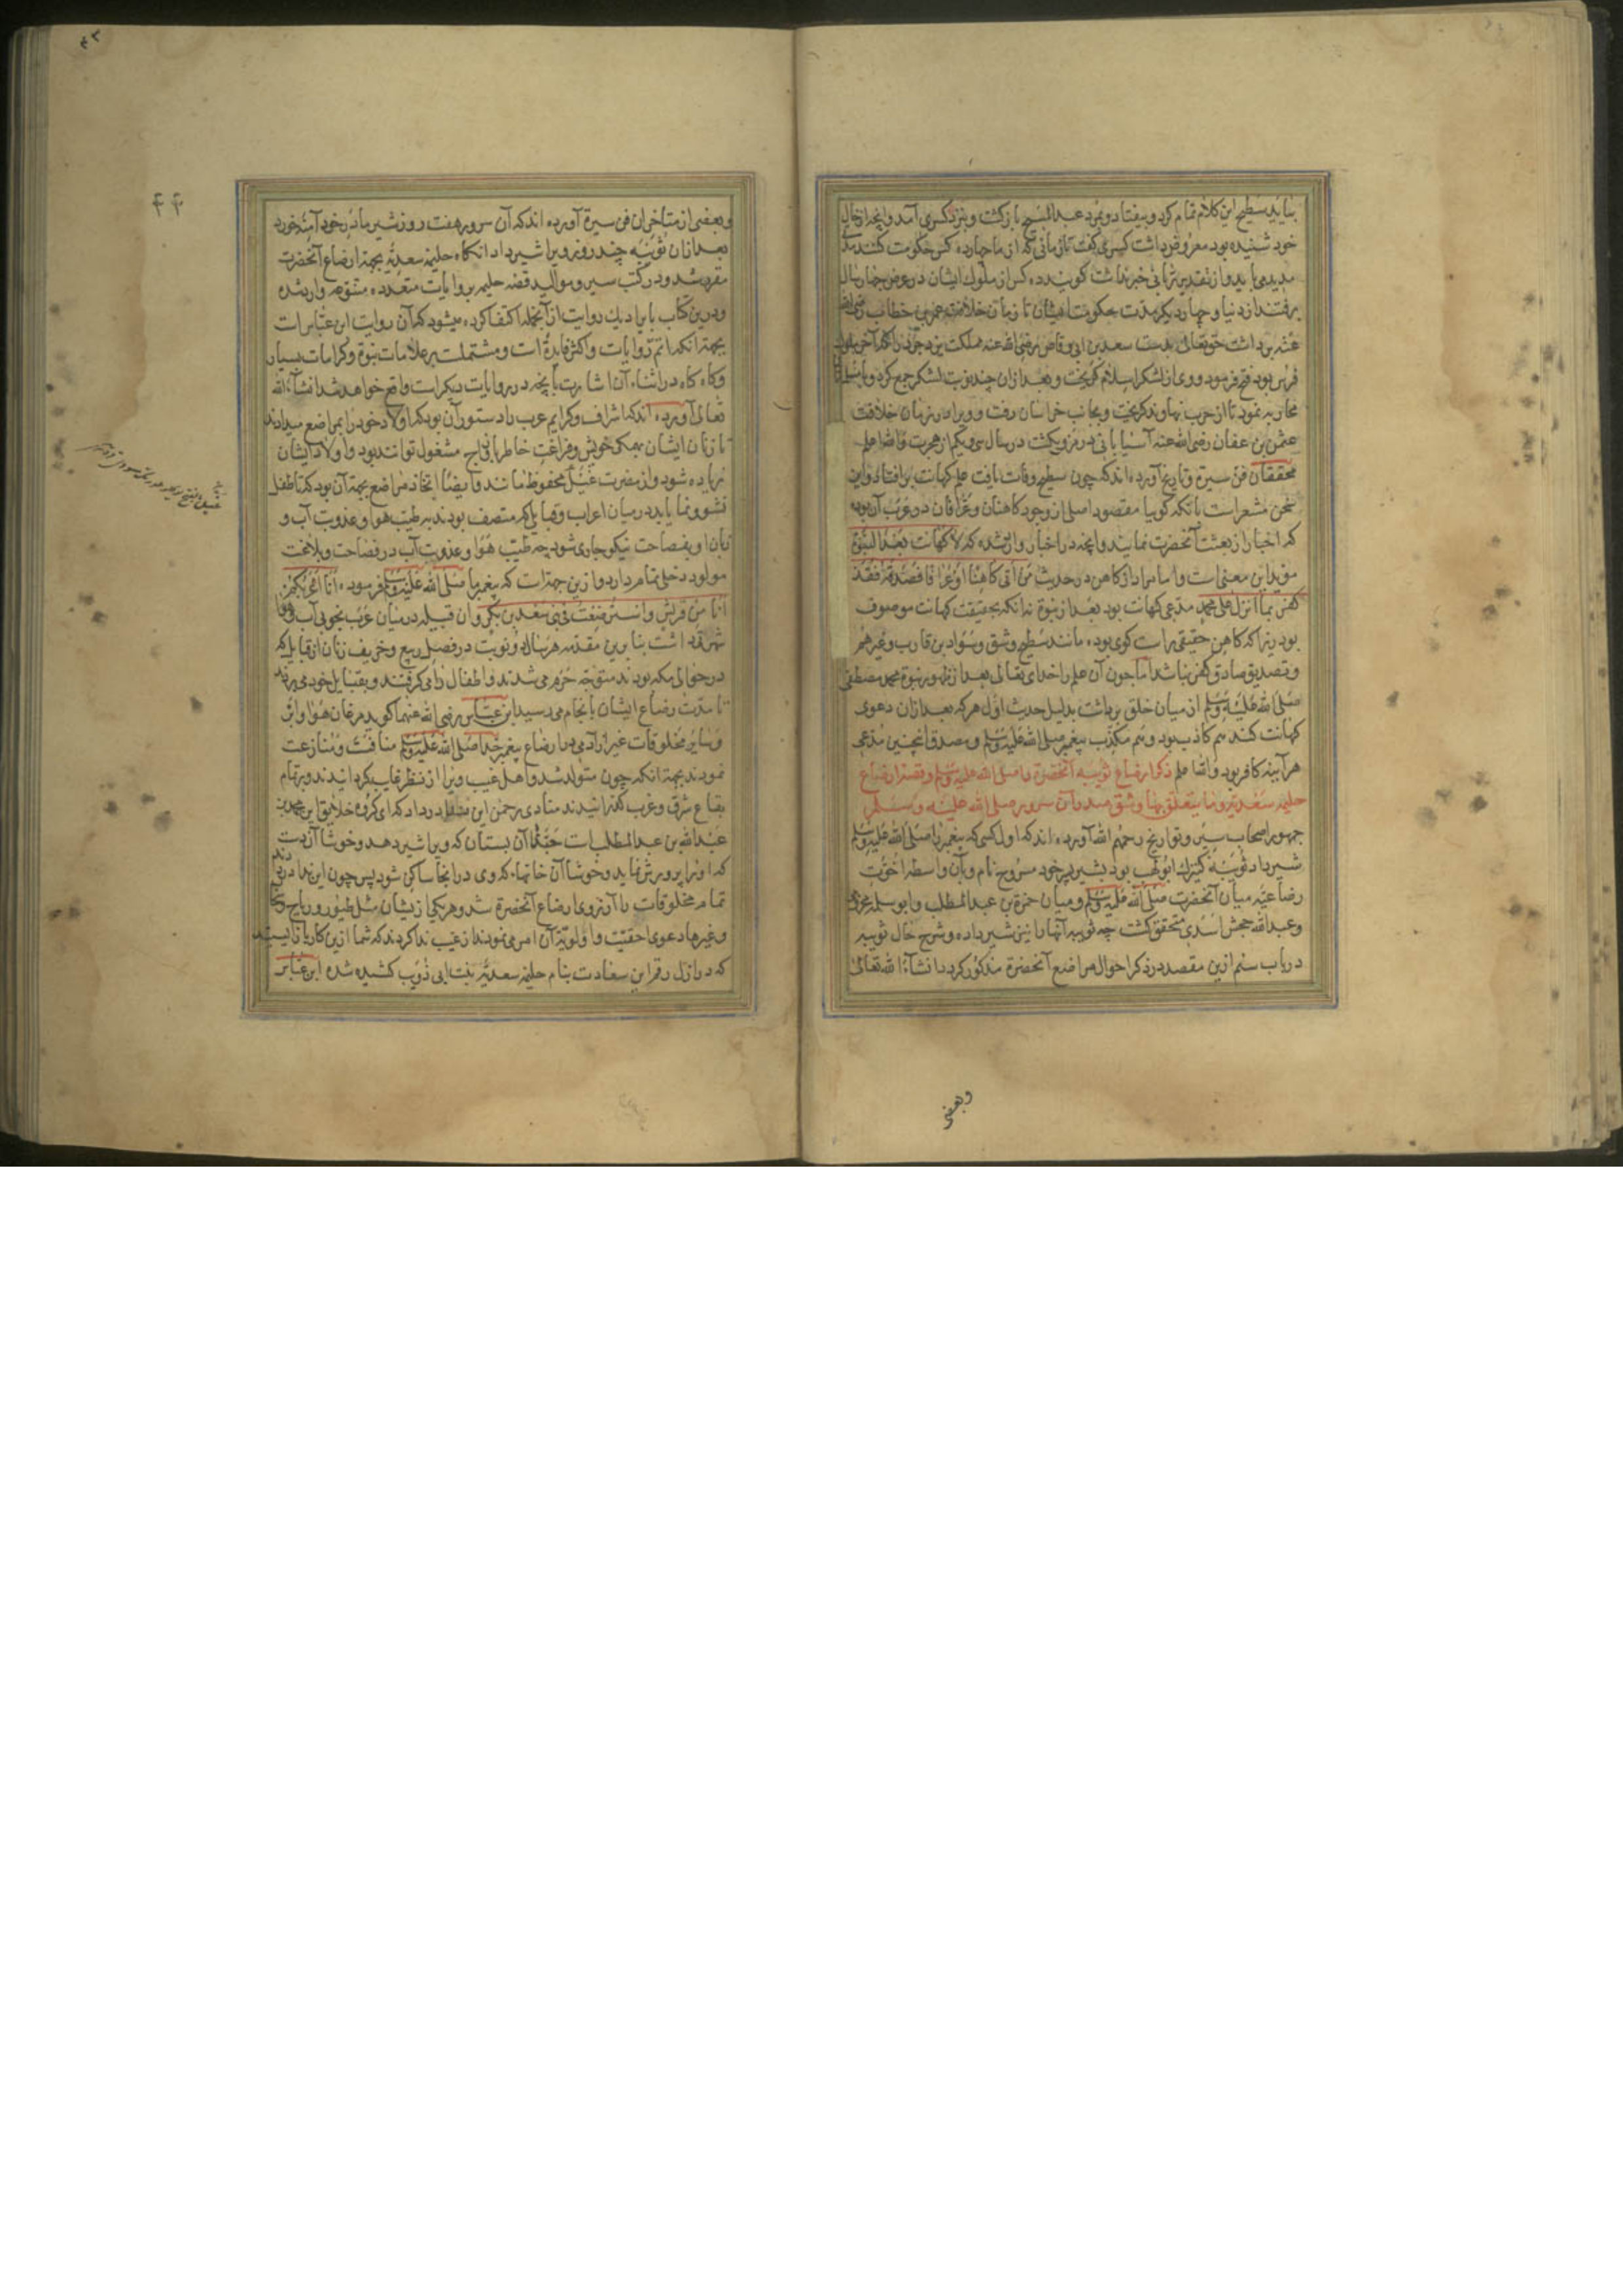 بیاید سطیح این کلام تمام کرد و بیفتاد و بمرد عبدالمسیح بازگشت و بنزد کسری آمد و آنچه از خال
خود شنیده بود معروض داشت کسری گفت تا زمانی که از ما چهارده کس حکومت کنند مدتی
مدید می باید و از تقدیر ربانی خبر نداشت گویند ده کس از ملوک ایشان در عرض چهار سال
برفتند از دنیا و چهار دیگر مدت حکومت ایشان تا زمان خلافت عمر بن خطاب رضی الله
عنه برداشت حق تعالی بدست سعد بن ابی وقاص رضی الله عنه مملکت یزدجرد را که آخر ملوک
فرس بود فتح فرمود و وی از لشکر اسلام گریخت و بعد از آن چند نوبت لشکر جمع کرد و با مسلمانان
محاربه نمود تا از حرب نهاوند گریخت و بجانب خراسان رفت و ویرا در زمان خلافت
عثمن بن عفان رضی الله عنه آسیابانی در مرو بکشت در سال سی و یکم از هجرت والله اعلم
محققان فن سیرة و تاریخ آورده اند که چون سطیح وفات یافت علم کهانت بر افتاد و این
سخن مشعر است بآنکه گوییا مقصود اصلی از وجود کاهنان و عرافان در عرب آن بود
که اخبار از بعثت آنحضرت نمایند و آنچه در اخبار وارد شده که لا کهانت بعد النبوة
موید این معنی است و اما مراد از کاهن در حدیث من اتی کاهنا او عرافا فصدقه فقد
کفر بما انزل علی محمد مدعی کهانت بود بعد از نبوة نه آنکه بحقیقت کهانت موصوف
بود زیرا که کاهن حقیقی راست گوی بوده مانند سطیح و شق و سواد بن قارب و غیرهم
و تصدیق صادق کفر نباشد اما چون آن علم را خدای تعالی بعد از ظهور نبوة محمد مصطفی
صلی الله علیه وسلم از میان خلق برداشت بدلیل حدیث اول هر که بعد از آن دعوی
کهانت کند هم کاذب بود و هم مکذب پیغمبر صلی الله علیه وسلم و مصدق اینچنین مدعی
هر آینه کافر بود والله اعلم ذکر ارضاع ثویبه آنحضرة را صلی الله علیه وسلم و قصة ارضاع
حلیمه سعدیه و ما یتعلق بها و شق صدر آن سرور صلی الله علیه و سلم
جمهور اصحاب سیر و تواریخ رحمهم الله آورده اند که اول کسی که پیغمبر را صلی الله علیه وسلم
شیر داد ثویبه کنیزک ابولهب بود بشیر پسر خود مسروح نام و بآن واسطه اخوت
رضاعیه میان آنحضرت صلی الله علیه وسلم و میان حمزة بن عبدالمطلب و ابو سلمه مخزومی
و عبدالله جحش اسدی متحقق گشت چه ثویبه آنها را نیز شیر داده و شرح حال ثویبه
در باب سیم ازین مقصد در ذکر احوال مراضع آنحضرة مذکور گردد انشآءالله تعالی
وبعضی
۴۳
۴۴
وبعضی از متاخران فن سیرة آورده اند که آن سرور هفت روز شیر مادر خود آمنه خورد
بعد از آن ثویبه چند روز ویرا شیر داد آنگاه حلیمه سعدیه بجهة ارضاع آنحضرت
مقرر شد و در کتب سیر و موالید قصه حلیمه بروایات متعدده متنوعه وارد شده
و درین کتاب بایراد یک روایت از آنجمله اکتفا کرده میشود که آن روایت ابن عباس است
بجهة آنکه اتم روایات و اکثر فایدة است و مشتملست بر علامات نبوة و کرامات بسیار
و گاه گاه در اثناء آن اشارت بآنچه در روایات دیگر است واقع خواهد شد انشآءالله
تعالی آورده اند که اشراف و کرایم عرب را دستور آن بود که اولاد خود را بمراضع میدادند
تا زنان ایشان بهمگی خویش و فراغت خاطر با ازواج مشغول توانند بود و اولاد ایشان
زیاده شود و از مضرت غیل محفوظ مانند و ایضا اتخاذ مراضع بجهة آن بود که تا طفل
نشو و نما یابد در میان اعراب و قبایلی که متصف بودند به طیب هوا و عذوبت آب و
زبان او بفصاحت نیکو جاری شود چه طیب هوا و عذوبت آب در فصاحت و بلاغت
مولود دخلی تمام دارد و ازین جهة است که پیغمبر ما صلی الله علیه وسلم فرمود انا اعربکم
انا من قریش و استرضعت فی بنی سعد بن بکر و آن قبیله در میان عرب بخوبی آب و هوا
شهرة داشت بنابرین مقدمه هر سال دو نوبت در فصل ربیع و خریف زنان از قبایلی که
در حوالی مکه بودند متوجه حرم می شدند و اطفال را می گرفتند و بقبایل خود می بردند
تا مدت رضاع ایشان بانجام می رسید ابن عباس رضی الله عنهما گوید مرغان هوا و ابر
و سایر مخلوقات غیر از آدمی در ارضاع پیغمبر خدا صلی الله علیه وسلم منافست و منازعت
نمودند بجهة آنکه چون متولد شد و اهل غیب ویرا از نظر غایب گردانیدند و بر تمام
بقاع شرق و غرب گذرانیدند منادی رحمن این ندا در داد که ای گروه خلایق این محمد بن
عبدالله بن عبدالمطلب است حبذا آن پستان که ویرا شیر دهد و خوشا آن دست
که او را پرورش نماید و خوشا آن خانها که وی در آنجا ساکن شود پس چون این ندا در دادند
تمام مخلوقات را آرزوی ارضاع آنحضرة شد و هریکی ازیشان مثل طیور و ریاح و سحاب
و غیرها دعوی احقیت و اولویت آن امر می نمودند از غیب ندا کردند که شما ازین کار باز ایستید
که در ازل رقم این سعادت بنام حلیمه سعدیه بنت ابی ذویب کشیده شده ابن عباس